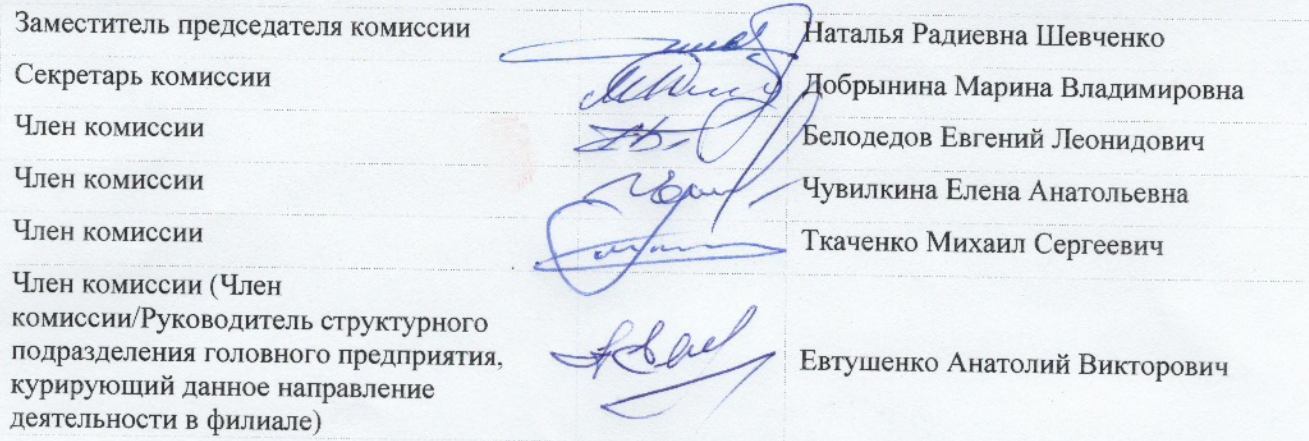 Заместитель председателя комиссии Наталья Радиевна Шевченко
Секретарь комиссии Добрынина Марина Владимировна
Член комиссии Белодедов Евгений Леонидович
Член комиссии Чувилкина Елена Анатольевна
Член комиссии Ткаченко Михаил Сергеевич
Член комиссии (Член
комиссии/Руководитель структурного
подразделения головного предприятия, Евтушенко Анатолий Викторович
курирующий данное направление
деятельности в филиале)